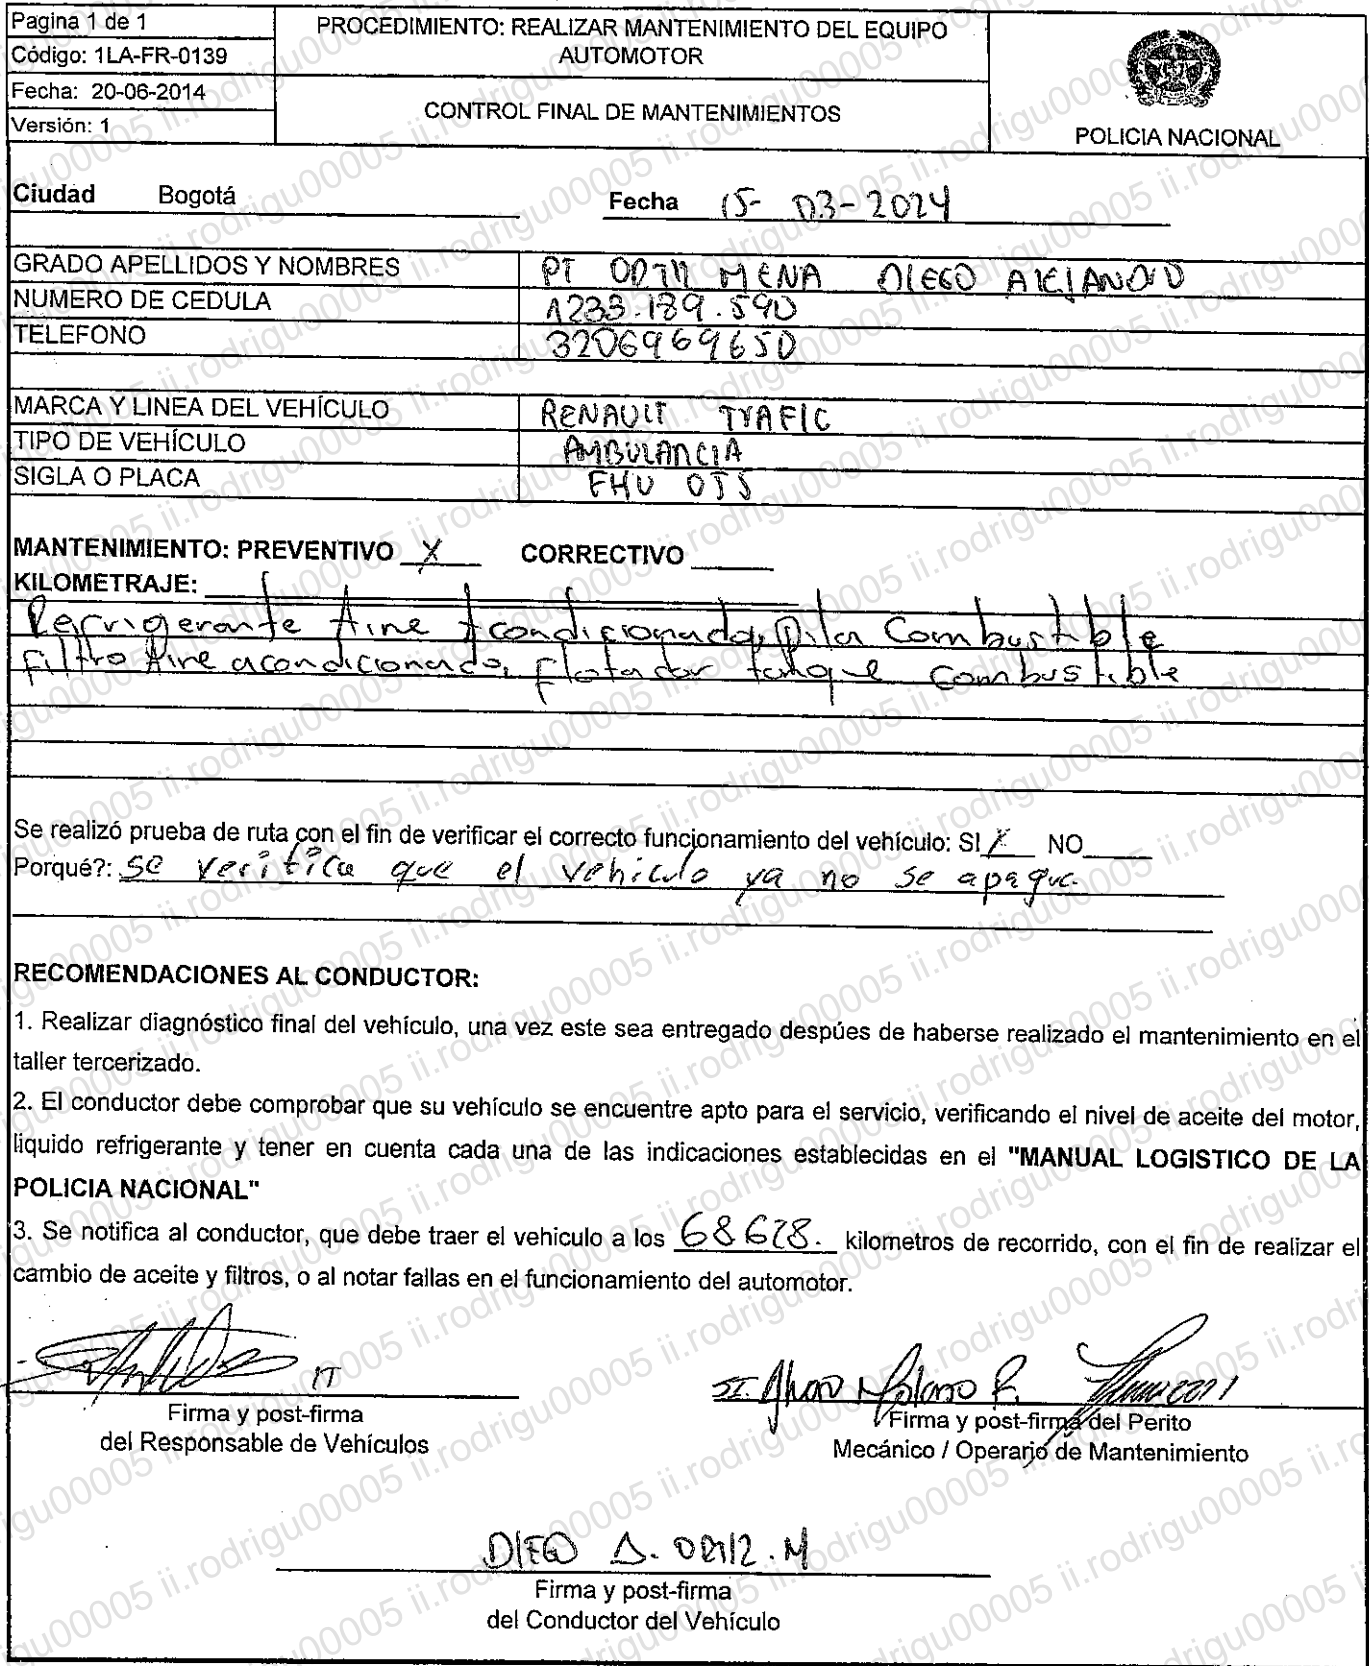 Pagina 1 de 1
Código: 1LA-FR-0139
Fecha: 20-06-2014
Versión: 1
PROCEDIMIENTO: REALIZAR MANTENIMIENTO DEL EQUIPO
AUTOMOTOR
CONTROL FINAL DE MANTENIMIENTOS
POLICIA NACIONAL
Ciudad Bogotá Fecha 15-03-2024
GRADO APELLIDOS Y NOMBRES PT MENA DIEGO
NUMERO DE CEDULA 1233.189.590
TELEFONO 3206969650
MARCA Y LINEA DEL VEHÍCULO RENAULT TRAFIC
TIPO DE VEHÍCULO AMBULANCIA
SIGLA O PLACA
MANTENIMIENTO: PREVENTIVO X CORRECTIVO
KILOMETRAJE:
Refrigerante Aire Acondicionado, Pila Combustible
Filtro Aire acondicionado, flotador tanque Combustible
Se realizó prueba de ruta con el fin de verificar el correcto funcionamiento del vehículo: SI X NO
Porqué?: se verifica que el vehiculo ya no se apague.
RECOMENDACIONES AL CONDUCTOR:
1. Realizar diagnóstico final del vehículo, una vez este sea entregado despúes de haberse realizado el mantenimiento en el
taller tercerizado.
2. El conductor debe comprobar que su vehículo se encuentre apto para el servicio, verificando el nivel de aceite del motor,
liquido refrigerante y tener en cuenta cada una de las indicaciones establecidas en el "MANUAL LOGISTICO DE LA
POLICIA NACIONAL"
3. Se notifica al conductor, que debe traer el vehiculo a los kilometros de recorrido, con el fin de realizar el
cambio de aceite y filtros, o al notar fallas en el funcionamiento del automotor.
IT
Firma y post-firma
del Responsable de Vehículos
Firma y post-firma del Perito
Mecánico / Operario de Mantenimiento
DIEGO A.
Firma y post-firma
del Conductor del Vehículo
ii.rodrigu00005